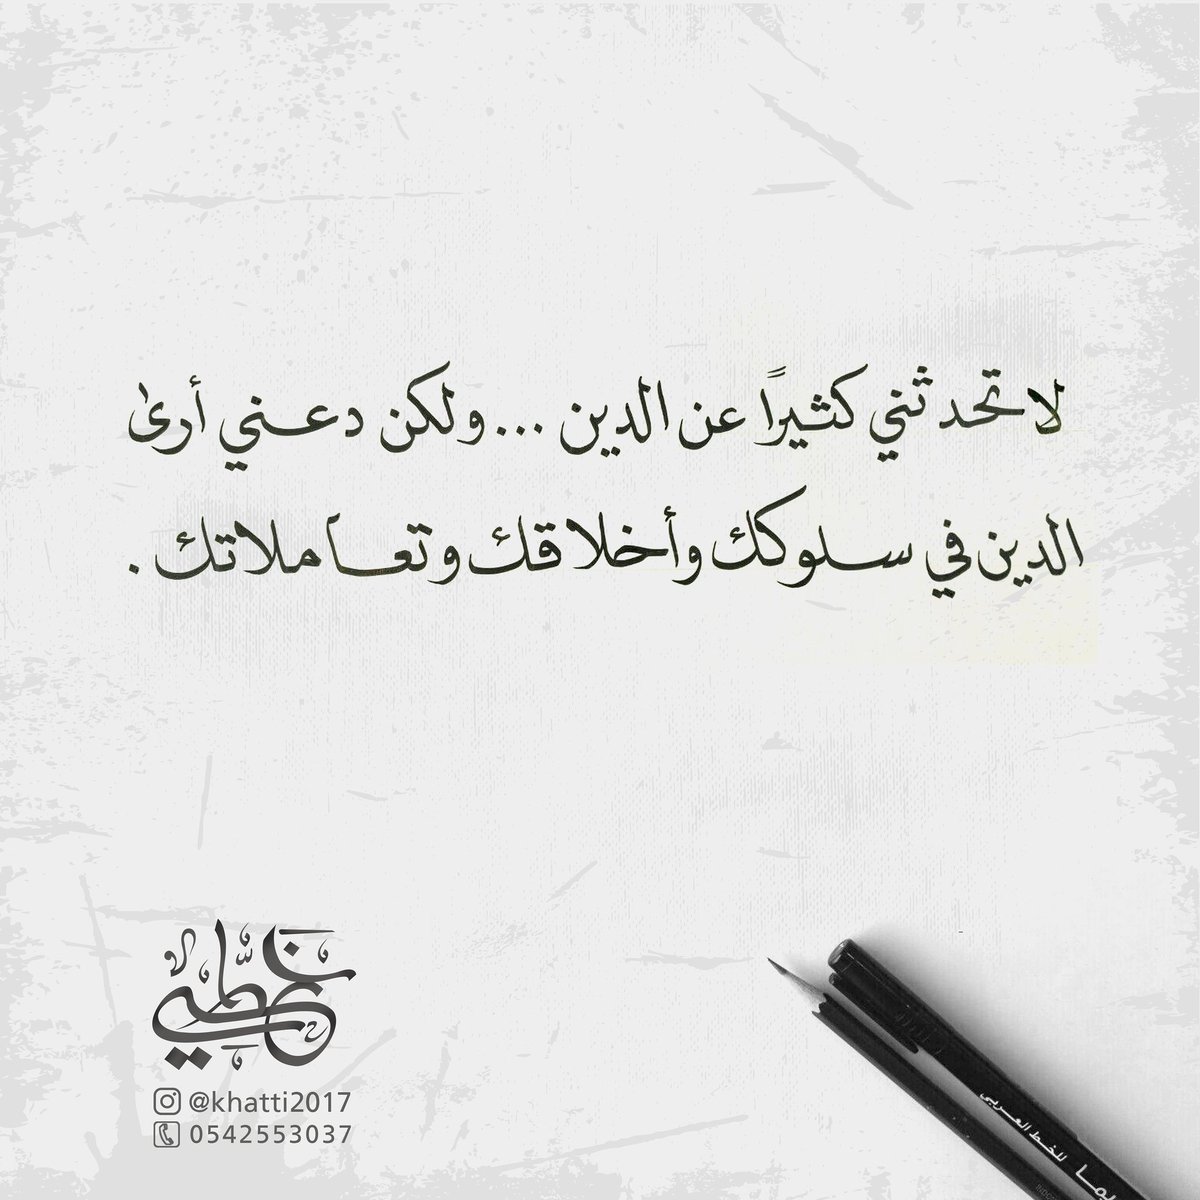 لا تحدثني كثيرًا عن الدين ... ولكن دعني أرى
الدين في سلوكك وأخلاقك وتعاملاتك .
خطي
@khatti2017
0542553037
للخط العربي